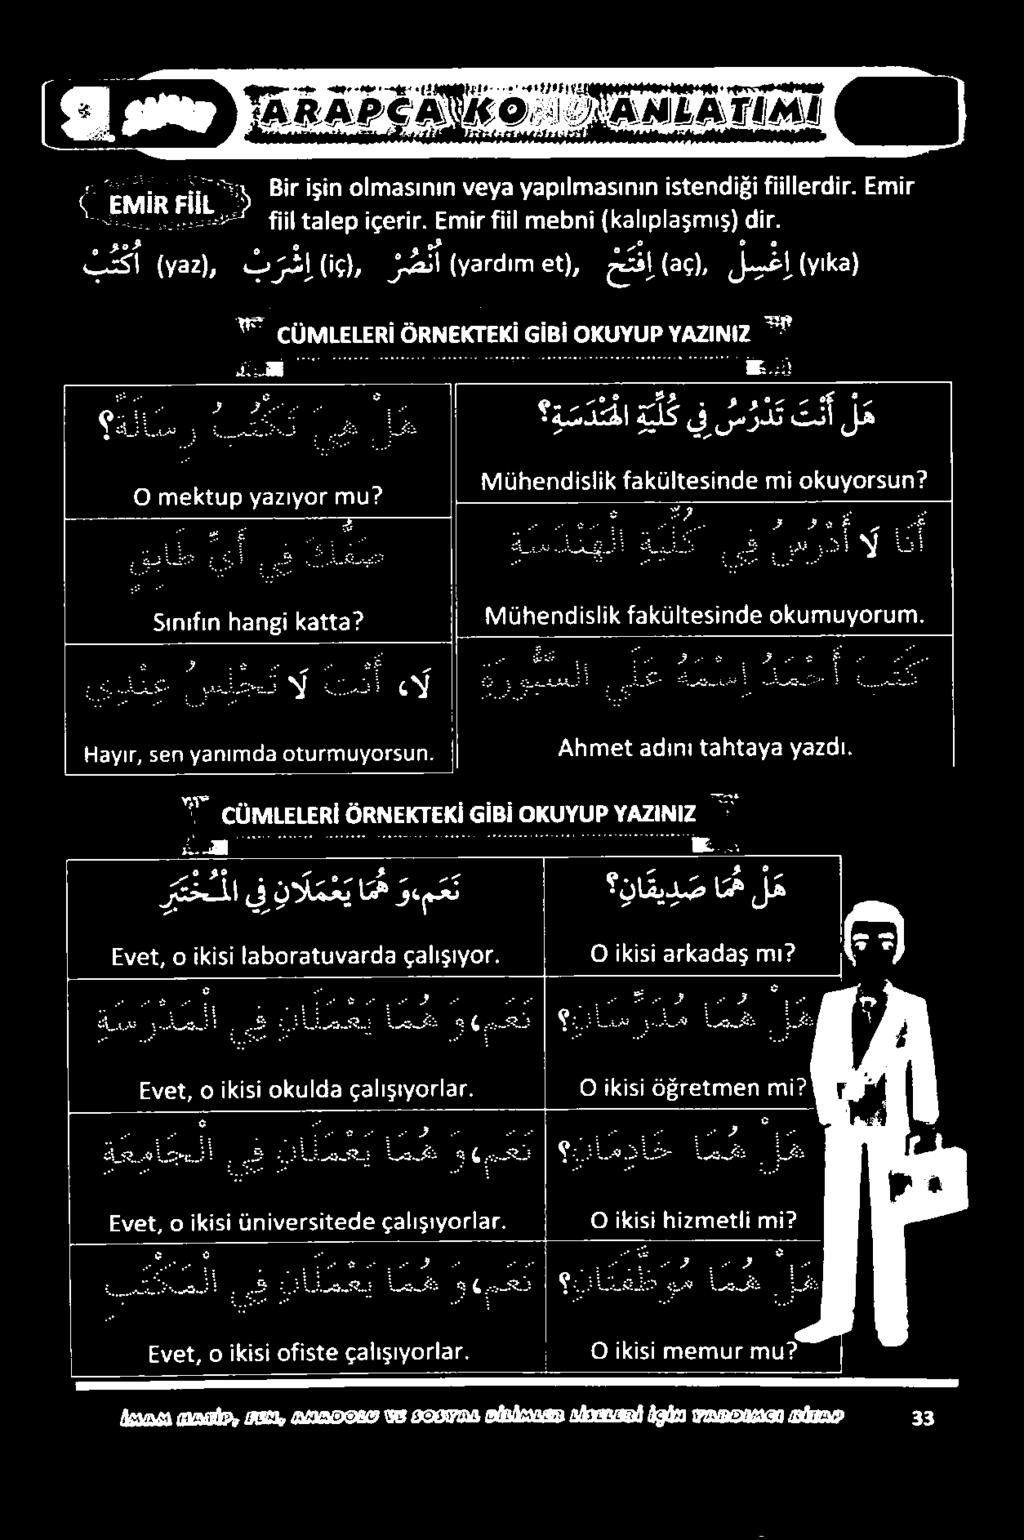 9. SINIF
ARAPÇA KONU ANLATIMI
EMİR FİİL
Bir işin olmasının veya yapılmasının istendiği fiillerdir. Emir
fiil talep içerir. Emir fiil mebni (kalıplaşmış) dir.
اُكْتُبْ (yaz), اِشْرَبْ (iç), اُنْصُرْ (yardım et), اِفْتَحْ (aç), اِغْسِلْ (yıka)
CÜMLELERİ ÖRNEKTEKİ GİBİ OKUYUP YAZINIZ
هَلْ أَنْتَ تَدْرُسُ فِي كُلِّيَّةِ الْهَنْدَسَةِ؟
Mühendislik fakültesinde mi okuyorsun?
هَلْ هِيَ تَكْتُبُ رِسَالَةً؟
O mektup yazıyor mu?
أَنَا لَا أَدْرُسُ فِي كُلِّيَّةِ الْهَنْدَسَةِ
Mühendislik fakültesinde okumuyorum.
صَفُّكَ فِي أَيِّ طَابِقٍ
Sınıfın hangi katta?
كَتَبَ أَحْمَدُ إِسْمَهُ عَلَى السَّبُّورَةِ
Ahmet adını tahtaya yazdı.
لَا، أَنْتَ لَا تَجْلِسُ عِنْدِي
Hayır, sen yanımda oturmuyorsun.
CÜMLELERİ ÖRNEKTEKİ GİBİ OKUYUP YAZINIZ
هَلْ هُمَا صَدِيقَانِ؟
O ikisi arkadaş mı?
نَعَم،وَ هُمَا يَعْمَلَانِ فِي الْمُخْتَبَرِ
Evet, o ikisi laboratuvarda çalışıyor.
هَلْ هُمَا مُدَرِّسَانِ؟
O ikisi öğretmen mi?
نَعَم،وَ هُمَا يَعْمَلَانِ فِي الْمَدْرَسَةِ
Evet, o ikisi okulda çalışıyorlar.
هَلْ هُمَا خَادِمَانِ؟
O ikisi hizmetli mi?
نَعَم،وَ هُمَا يَعْمَلَانِ فِي الْجَامِعَةِ
Evet, o ikisi üniversitede çalışıyorlar.
هَلْ هُمَا مُوَظَّفَتَانِ؟
O ikisi memur mu?
نَعَم،وَ هُمَا يَعْمَلَانِ فِي الْمَكْتَبِ
Evet, o ikisi ofiste çalışıyorlar.
İMAM HATİP, FEN, ANADOLU VE SOSYAL BİLİMLER LİSELERİ İÇİN YARDIMCI KİTAP 33